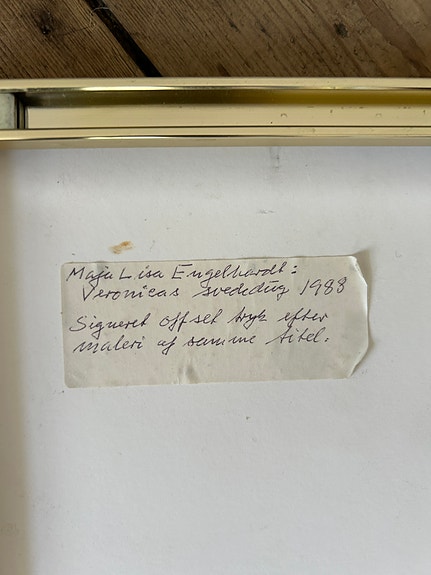 Maja Lisa Engelhardt:
Veronicas svededug 1988
Signeret offset tryk efter
maleri af samme titel.